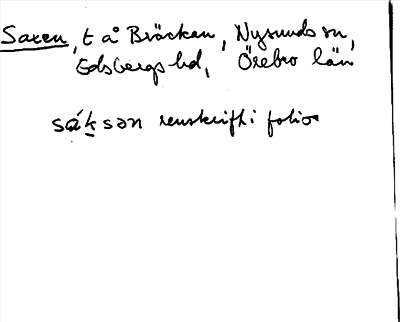 Saxen, t å Bräckan, Nysunds sn,
Edsbergs hd, Örebro län
sáksən renskrift i folio